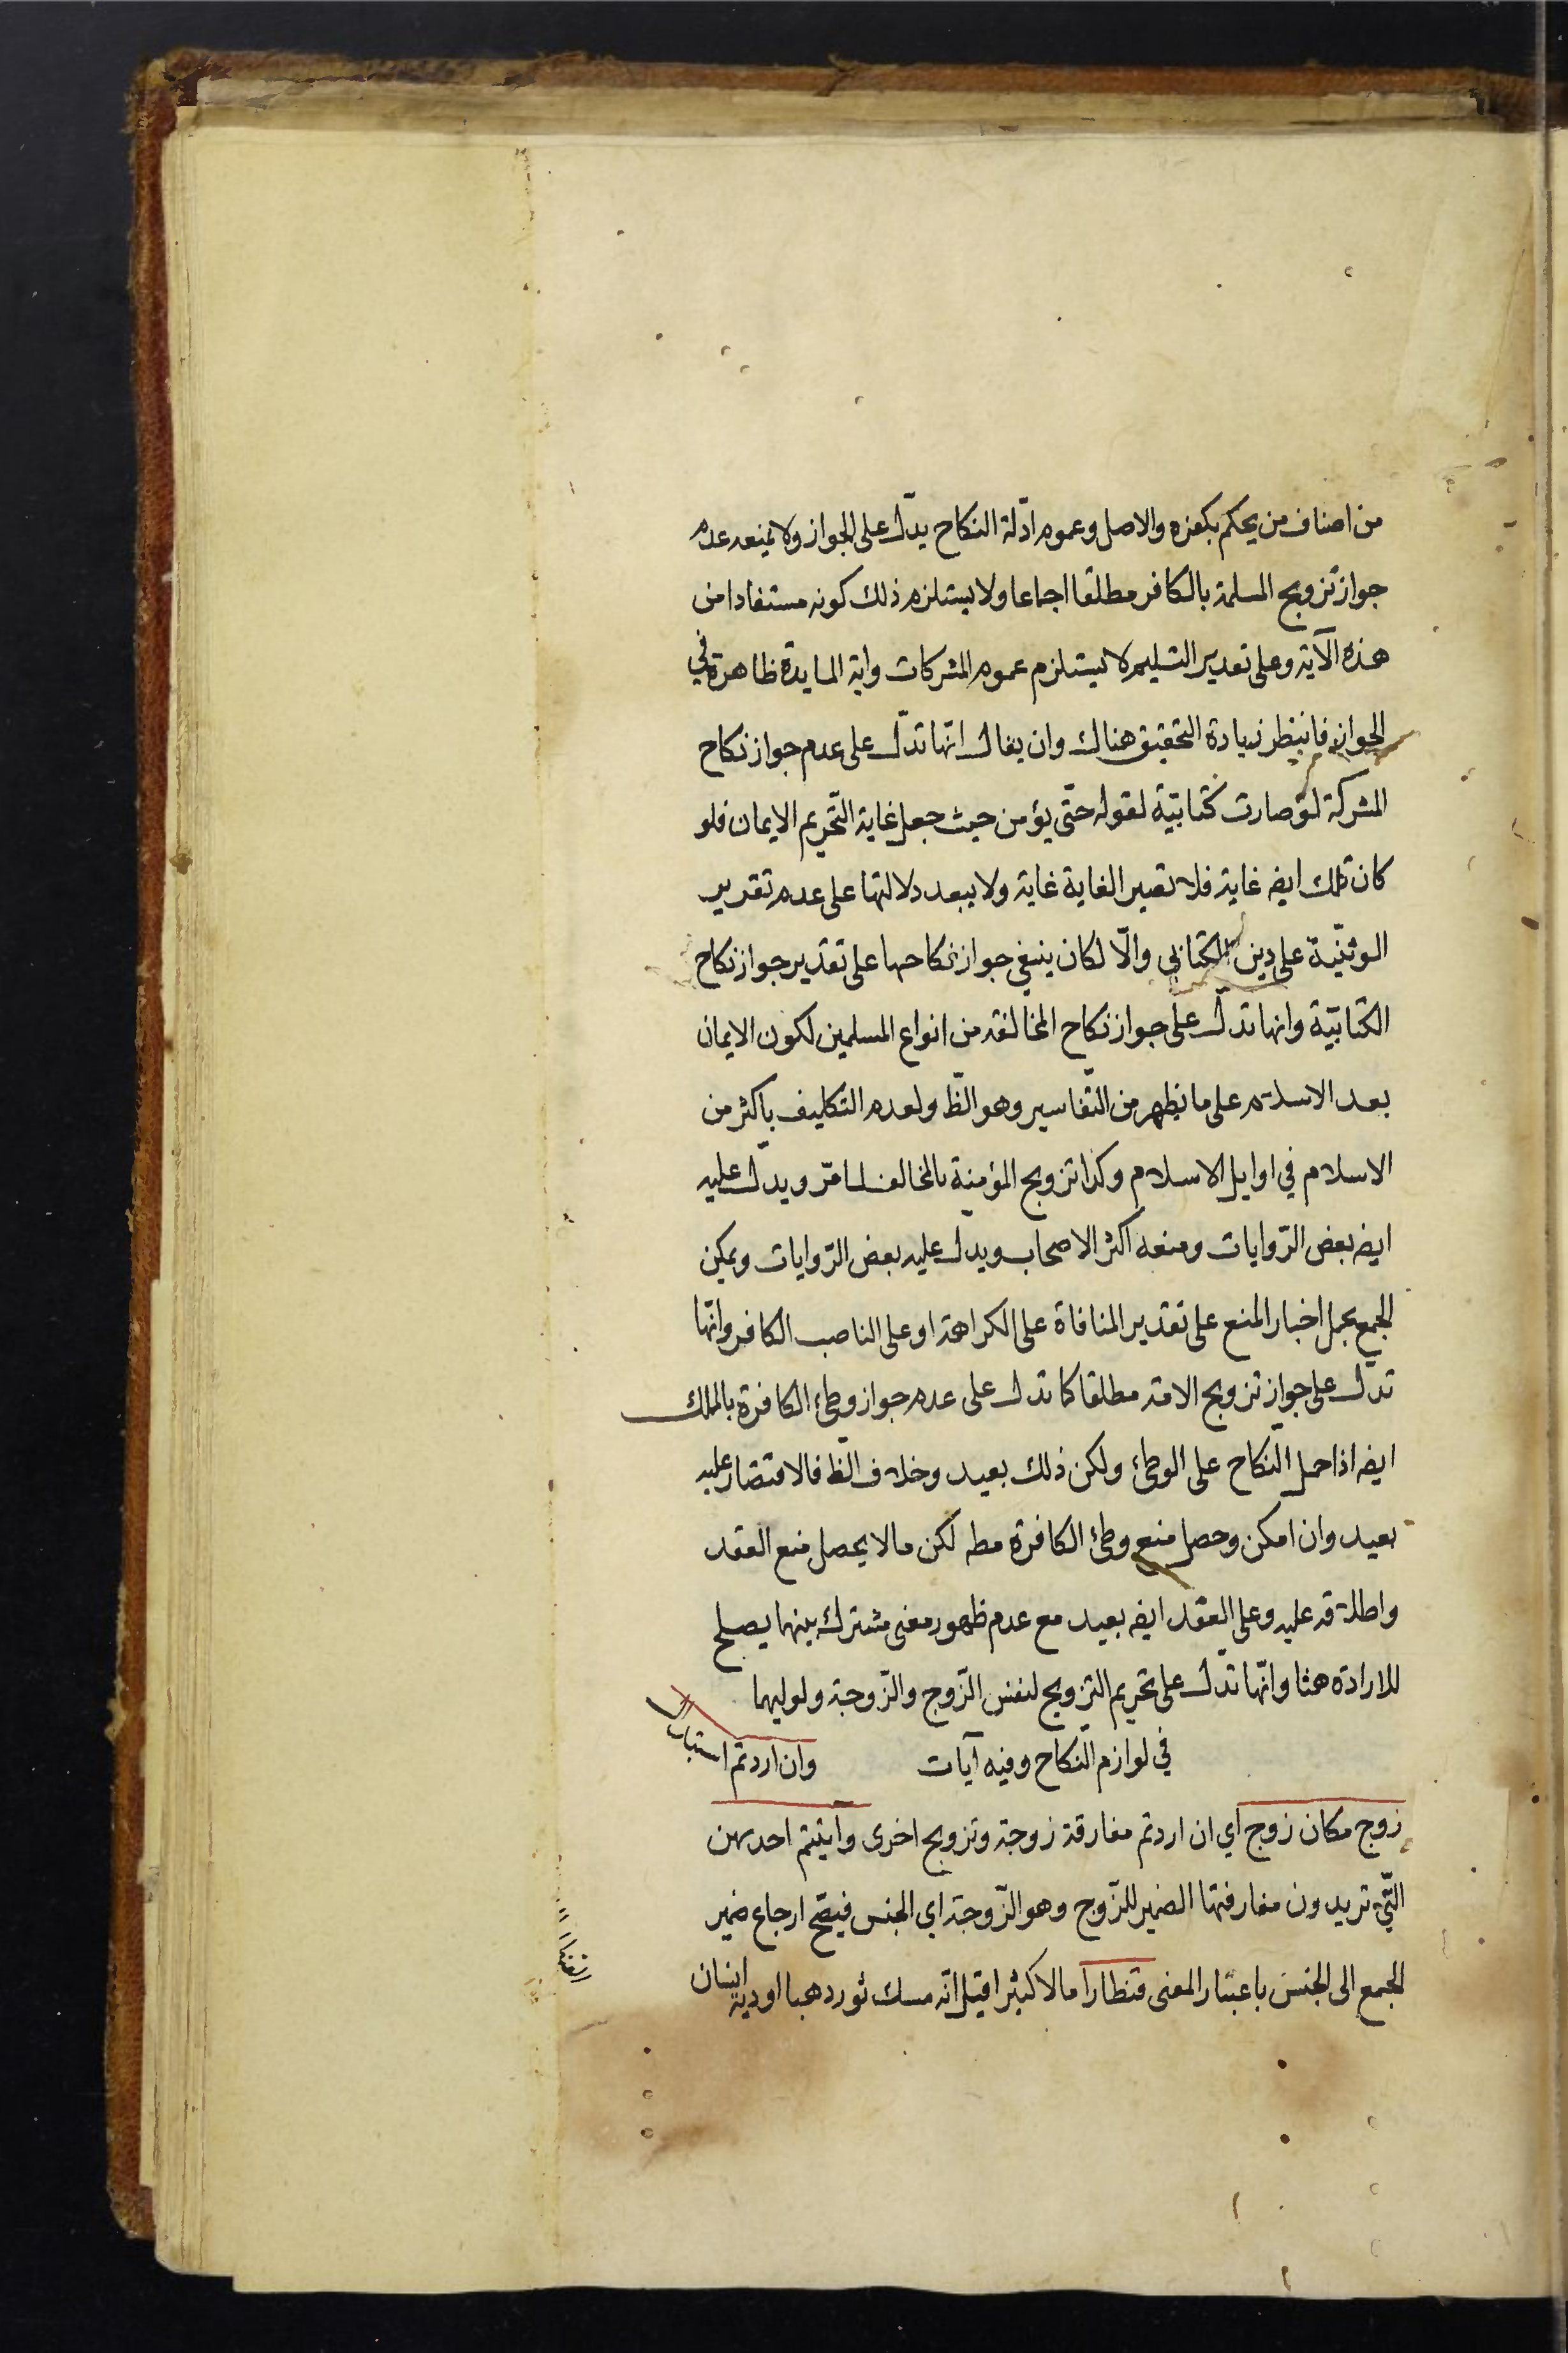 من اصناف من يحكم بكفره والاصل وعموم ادّلة النكاح يدّل على الجواز ولا يمنعه عدم
جواز تزويج المسلمة بالكافر مطلقا اجماعا ولا يستلزم ذلك كونه مستفادا من
هذه الآية وعلى تقدير التسليم لا يستلزم عموم المشركات واية المايدة ظاهرة في
الجواز فانيظر زيادة التحقيق هناك وان يقال انّها تدّل على عدم جواز نكاح
المشركة لو صارت كتابيّة لقوله حتّى يؤمن حيث جعل غاية التّحريم الايمان فلو
كان تلك ايضه غاية فلا تصير الغاية غاية ولا يبعد دلالتها على عدم تقدير
الوثنّية على دين الكتابي والّا لكان ينبغي جواز نكاحها على تقدير جواز نكاح
الكتابيّة وانها تدلّ على جواز نكاح المخالفه من انواع المسلمين لكون الايمان
بعد الاسلام على ما يظهر من التّفاسير وهو الظّ ولعدم التكليف باكثر من
الاسلام في اوايل الاسلام وكذا تزويج المؤمنة بالمخالف لما مرّ ويدّل عليه
ايضه بعض الرّوايات ومنعه اكثر الاصحاب ويدل عليه بعض الرّوايات ويمكن
الجمع بحمل اخبار المنع على تقدير المنافاة على الكراهة او على الناصب الكافر وانّها
تدّل على جواز تزويج الامة مطلقا كما تدل على عدم جواز وطئ الكافرة بالملك
ايضه اذا حمل النّكاح على الوطئ ولكن ذلك بعيد وخلاف الظّ فالاقتصار عليه
بعيد وان امكن وحصل منع وطئ الكافرة مطه لكن مالا يحصل منع العقد
واطلاقه عليه وعلى العقد ايضه بعيد مع عدم ظهور معنى مشترك بينهما يصلح
للارادة هنا وانّها تدّل على تحريم التزويج لنفس الزّوج والزّوجة ولوليهما
في لوازم النكاح وفيه آيات وان اردتم استبدال
زوج مكان زوج اي ان اردتم مفارقة زوجة وتزويج اخرى وآتيتم احديهن
التّي تريدون مفارقتها الضمير للزّوج وهو الزّوجة اي الجنس فيصّح ارجاع ضمير
الجمع الى الجنس باعتبار المعنى قنطارا مالا كثيرا قيل انّه مسك ثور ذهبا او دية انسان